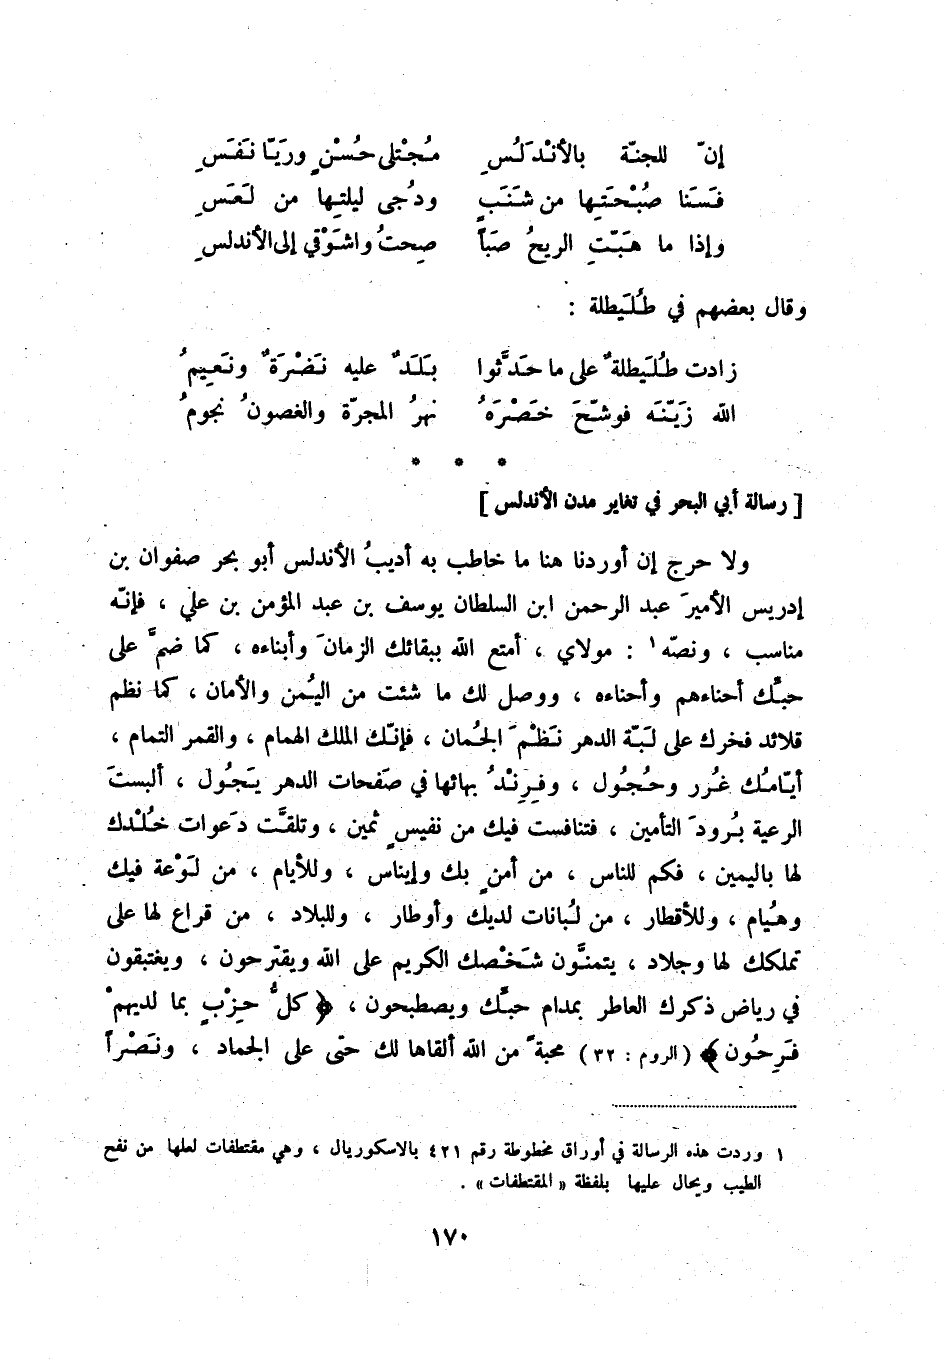 إنّ للجنّة بالأنْدَلُسِ مُجْتلى حُسْنٍ وريّا نَفَسِ
فَسَنَا صُبْحَتِها من شَنَبٍ ودُجى ليلتِها من لَعَسِ
وإذا ما هَبّتِ الريحُ صَباً صِحتُ واشَوْقي إلى الأندلسِ
وقال بعضهم في طُلَيطلة :
زادت طُلَيطلةٌ على ما حَدَّثوا بَلَدٌ عليه نَضْرَةٌ ونَعِيمُ
الله زَيّنَه فوشّحَ خَصْرَهُ نهرُ المجرّة والغصونُ نجومُ
* * *
[ رسالة أبي البحر في تغاير مدن الأندلس ]
ولا حرج إن أوردنا هنا ما خاطب به أديبُ الأندلس أبو بحر صفوان بن
إدريس الأميرَ عبد الرحمن ابن السلطان يوسف بن عبد المؤمن بن علي ، فإنّه
مناسب ، ونصّه ١ : مولاي ، أمتع الله ببقائك الزمانَ وأبناءه ، كما ضمَّ على
حبّك أحناءهم وأحناءه ، ووصل لك ما شئت من اليُمن والأمان ، كما نظم
قلائد فخرك على لَبّة الدهر نَظْمَ الجُمان ، فإنّك الملك الهمام ، والقمر التمام ،
أيّامُك غُرر وحُجُول ، وفِرِنْدُ بهائها في صَفحات الدهر يَجُول ، ألبستَ
الرعية بُرودَ التأمين ، فتنافست فيك من نفيسٍ ثمين ، وتلقّت دَعوات خُلْدك
لها باليمين ، فكم للناس ، من أمنٍ بك وإيناس ، وللأيام ، من لَوْعة فيك
وهُيام ، وللأقطار ، من لُبانات لديك وأوطار ، وللبلاد ، من قراع لها على
تملكك لها وجلاد ، يتمنَّون شَخْصك الكريم على الله ويقترحون ، ويغتبقون
في رياض ذكرك العاطر بمدام حبّك ويصطبحون ، ﴿ كلُّ حِزْبٍ بما لديهمْ
فَرِحُون ﴾ ( الروم : ٣٢ ) محبةً من الله ألقاها لك حتى على الجماد ، ونَصْراً
١ وردت هذه الرسالة في أوراق مخطوطة رقم ٤٢١ بالاسكوريال ، وهي مقتطفات لعلها من نفح
الطيب ويحال عليها بلفظة « المقتطفات » .
١٧٠